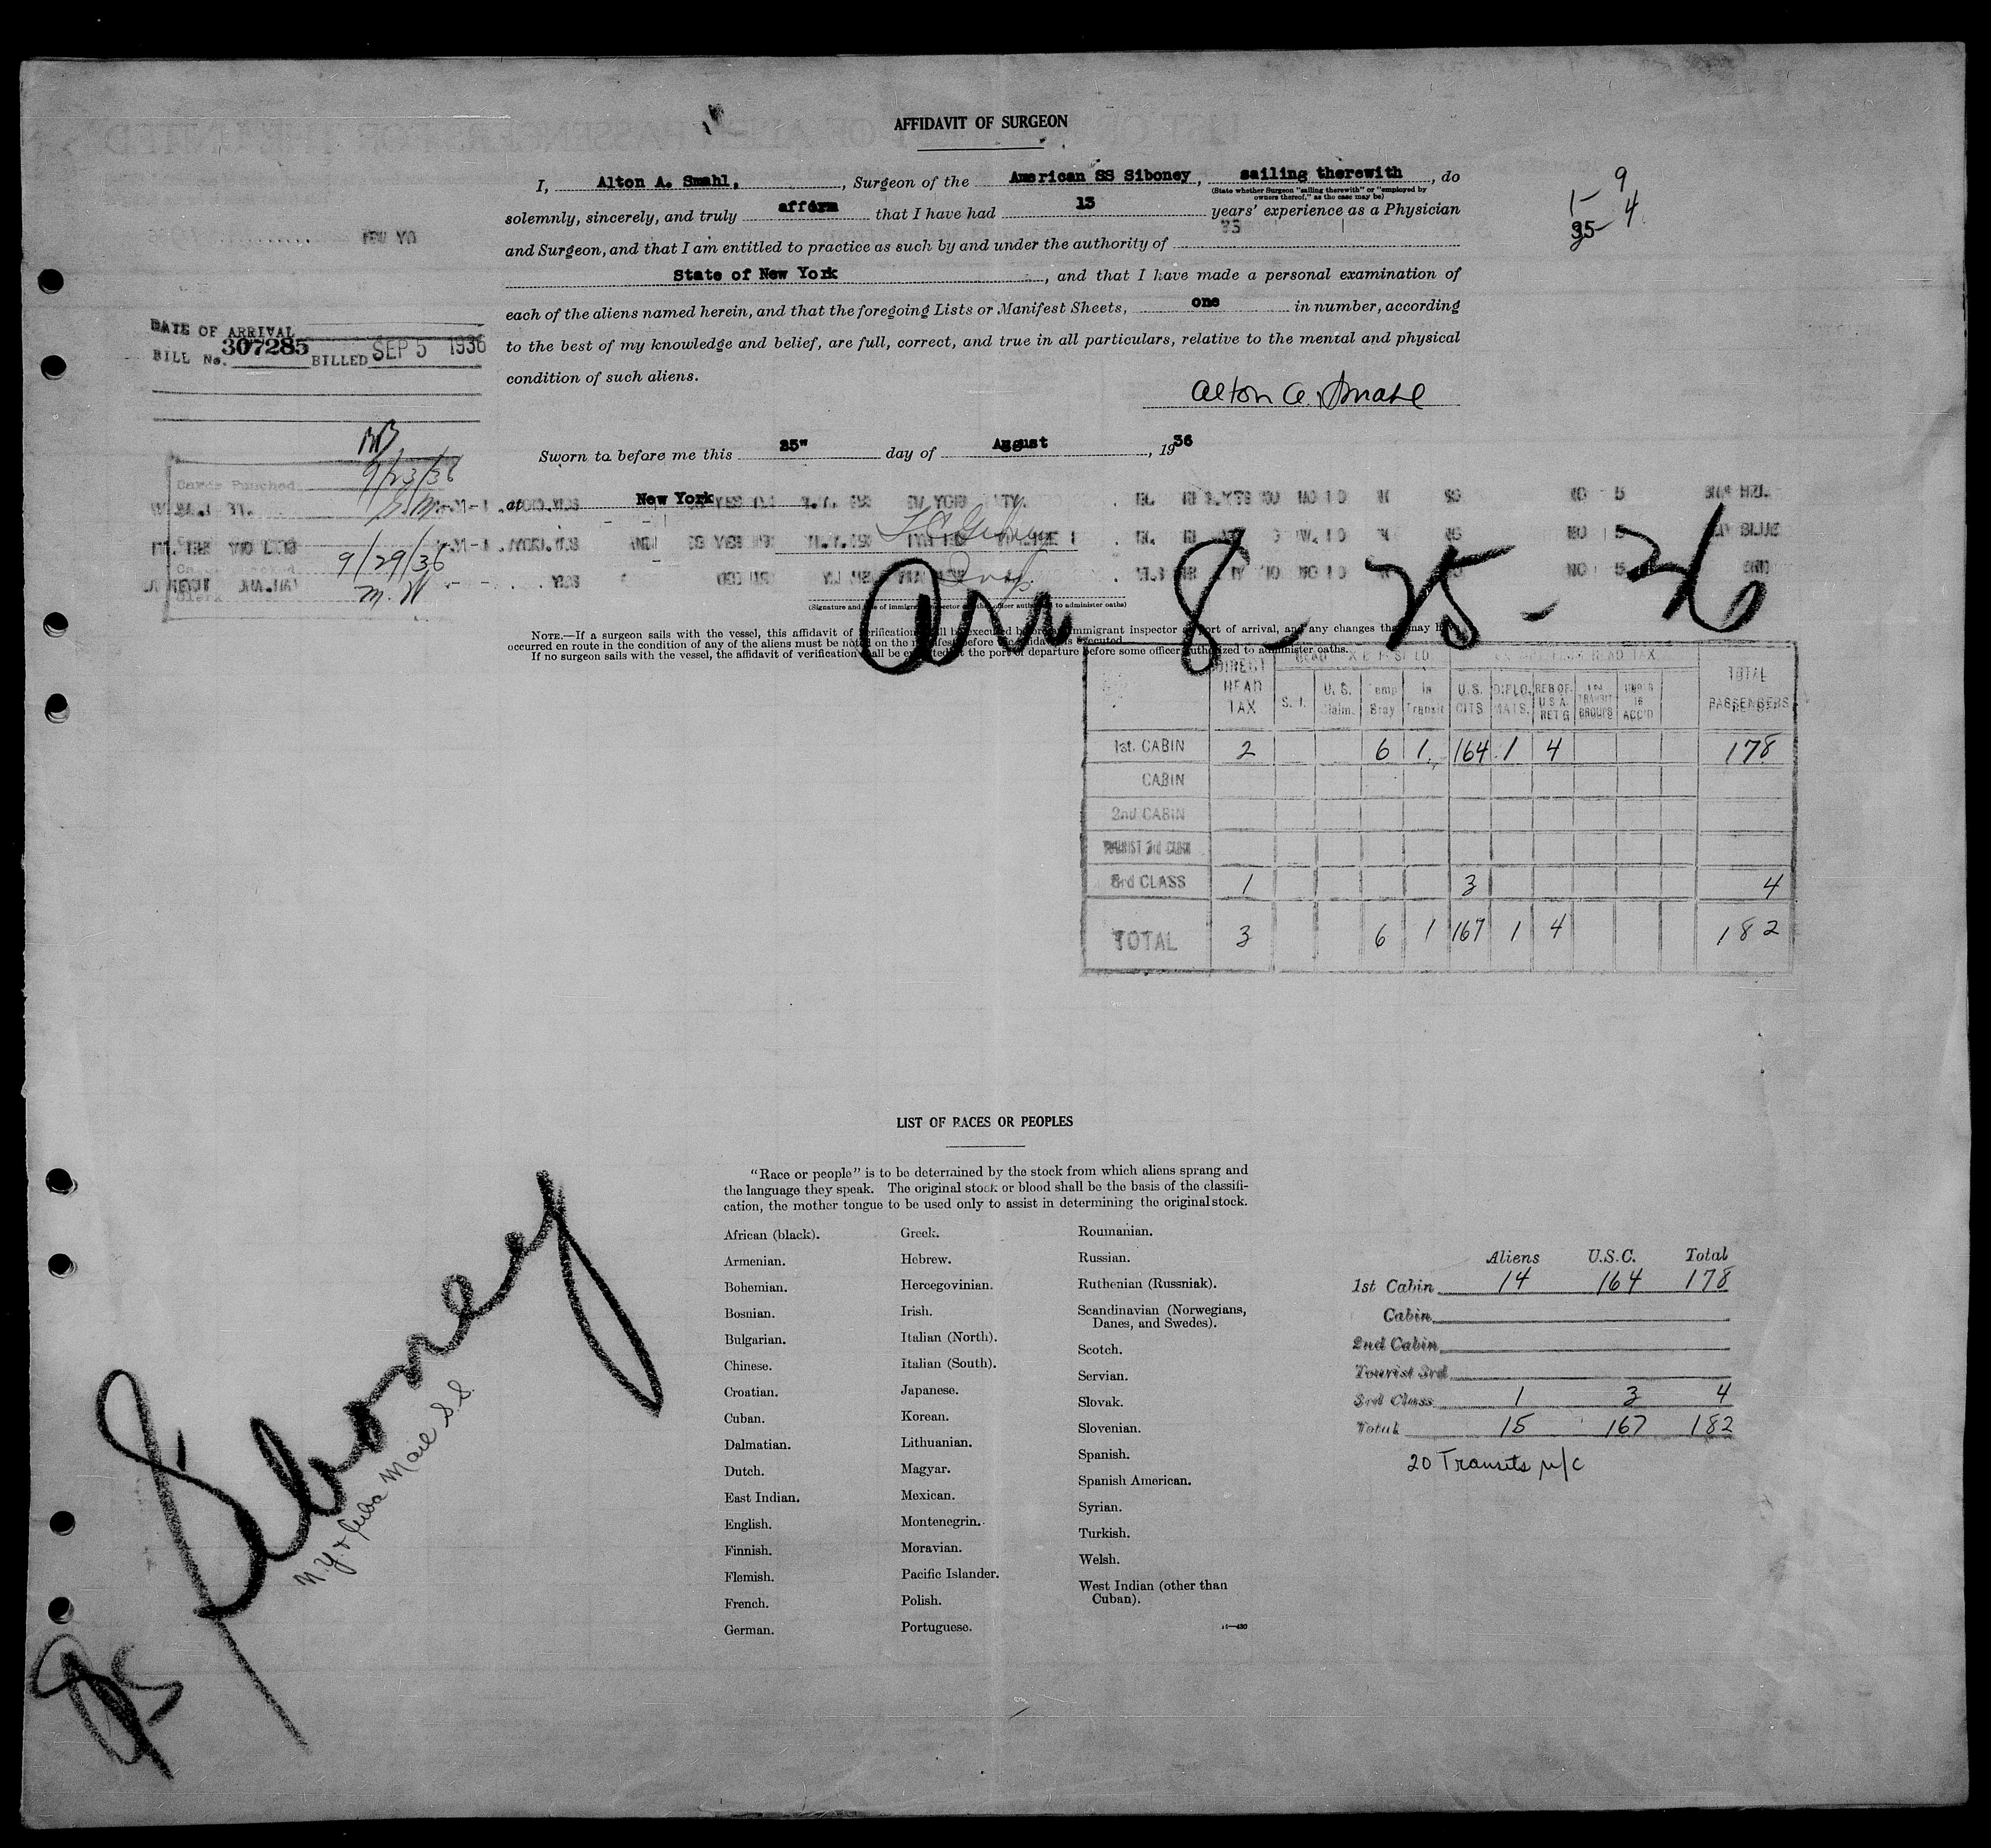 AFFIDAVIT OF SURGEON
I, Alton A. Smahl, , Surgeon of the American SS Siboney, sailing therewith , do
(State whether Surgeon "sailing therewith" or "employed by
owners thereof," as the case may be)
solemnly, sincerely, and truly affirm that I have had 13 years' experience as a Physician
and Surgeon, and that I am entitled to practice as such by and under the authority of
State of New York , and that I have made a personal examination of
each of the aliens named herein, and that the foregoing Lists or Manifest Sheets, one in number, according
to the best of my knowledge and belief, are full, correct, and true in all particulars, relative to the mental and physical
condition of such aliens.
Alton A. Smahl
Sworn to before me this 25" day of August , 1936
at New York
(Signature and title of immigrant inspector or other officer authorized to administer oaths)
9
1- 4
35-
DATE OF ARRIVAL
BILL No. 307285 BILLED SEP 5 1936
9/23/36
Cards Punched
9/29/36
M. W
Clerk
Arr. 8-25-36
NOTE.—If a surgeon sails with the vessel, this affidavit of verification shall be executed before an immigrant inspector at port of arrival, and any changes that may have
occurred en route in the condition of any of the aliens must be noted on the manifest before the affidavit is executed.
If no surgeon sails with the vessel, the affidavit of verification shall be executed at the port of departure before some officer authorized to administer oaths.
DIRECT HEAD TAX S. I. U. S. Claim. Temp Stay In Transit U.S. CITS DIPLO. MATS. RES OF U S A. RET'G IN TRANSIT GROUPS UND'R 16 ACC'D TOTAL PASSENGERS
1st. CABIN 2 6 1 164 1 4 178
CABIN
2nd CABIN
TOURIST 3rd CABIN
3rd CLASS 1 3 4
TOTAL 3 6 1 167 1 4 182
LIST OF RACES OR PEOPLES
"Race or people" is to be determined by the stock from which aliens sprang and
the language they speak. The original stock or blood shall be the basis of the classifi-
cation, the mother tongue to be used only to assist in determining the original stock.
African (black).
Armenian.
Bohemian.
Bosnian.
Bulgarian.
Chinese.
Croatian.
Cuban.
Dalmatian.
Dutch.
East Indian.
English.
Finnish.
Flemish.
French.
German.
Greek.
Hebrew.
Hercegovinian.
Irish.
Italian (North).
Italian (South).
Japanese.
Korean.
Lithuanian.
Magyar.
Mexican.
Montenegrin.
Moravian.
Pacific Islander.
Polish.
Portuguese.
Roumanian.
Russian.
Ruthenian (Russniak).
Scandinavian (Norwegians,
Danes, and Swedes).
Scotch.
Servian.
Slovak.
Slovenian.
Spanish.
Spanish American.
Syrian.
Turkish.
Welsh.
West Indian (other than
Cuban).
Aliens U.S.C. Total
1st Cabin 14 164 178
Cabin
2nd Cabin
Tourist 3rd
3rd Class 1 3 4
Total 15 167 182
20 Transits n/c
Siboney
N.Y. & Cuba Mail S.S.